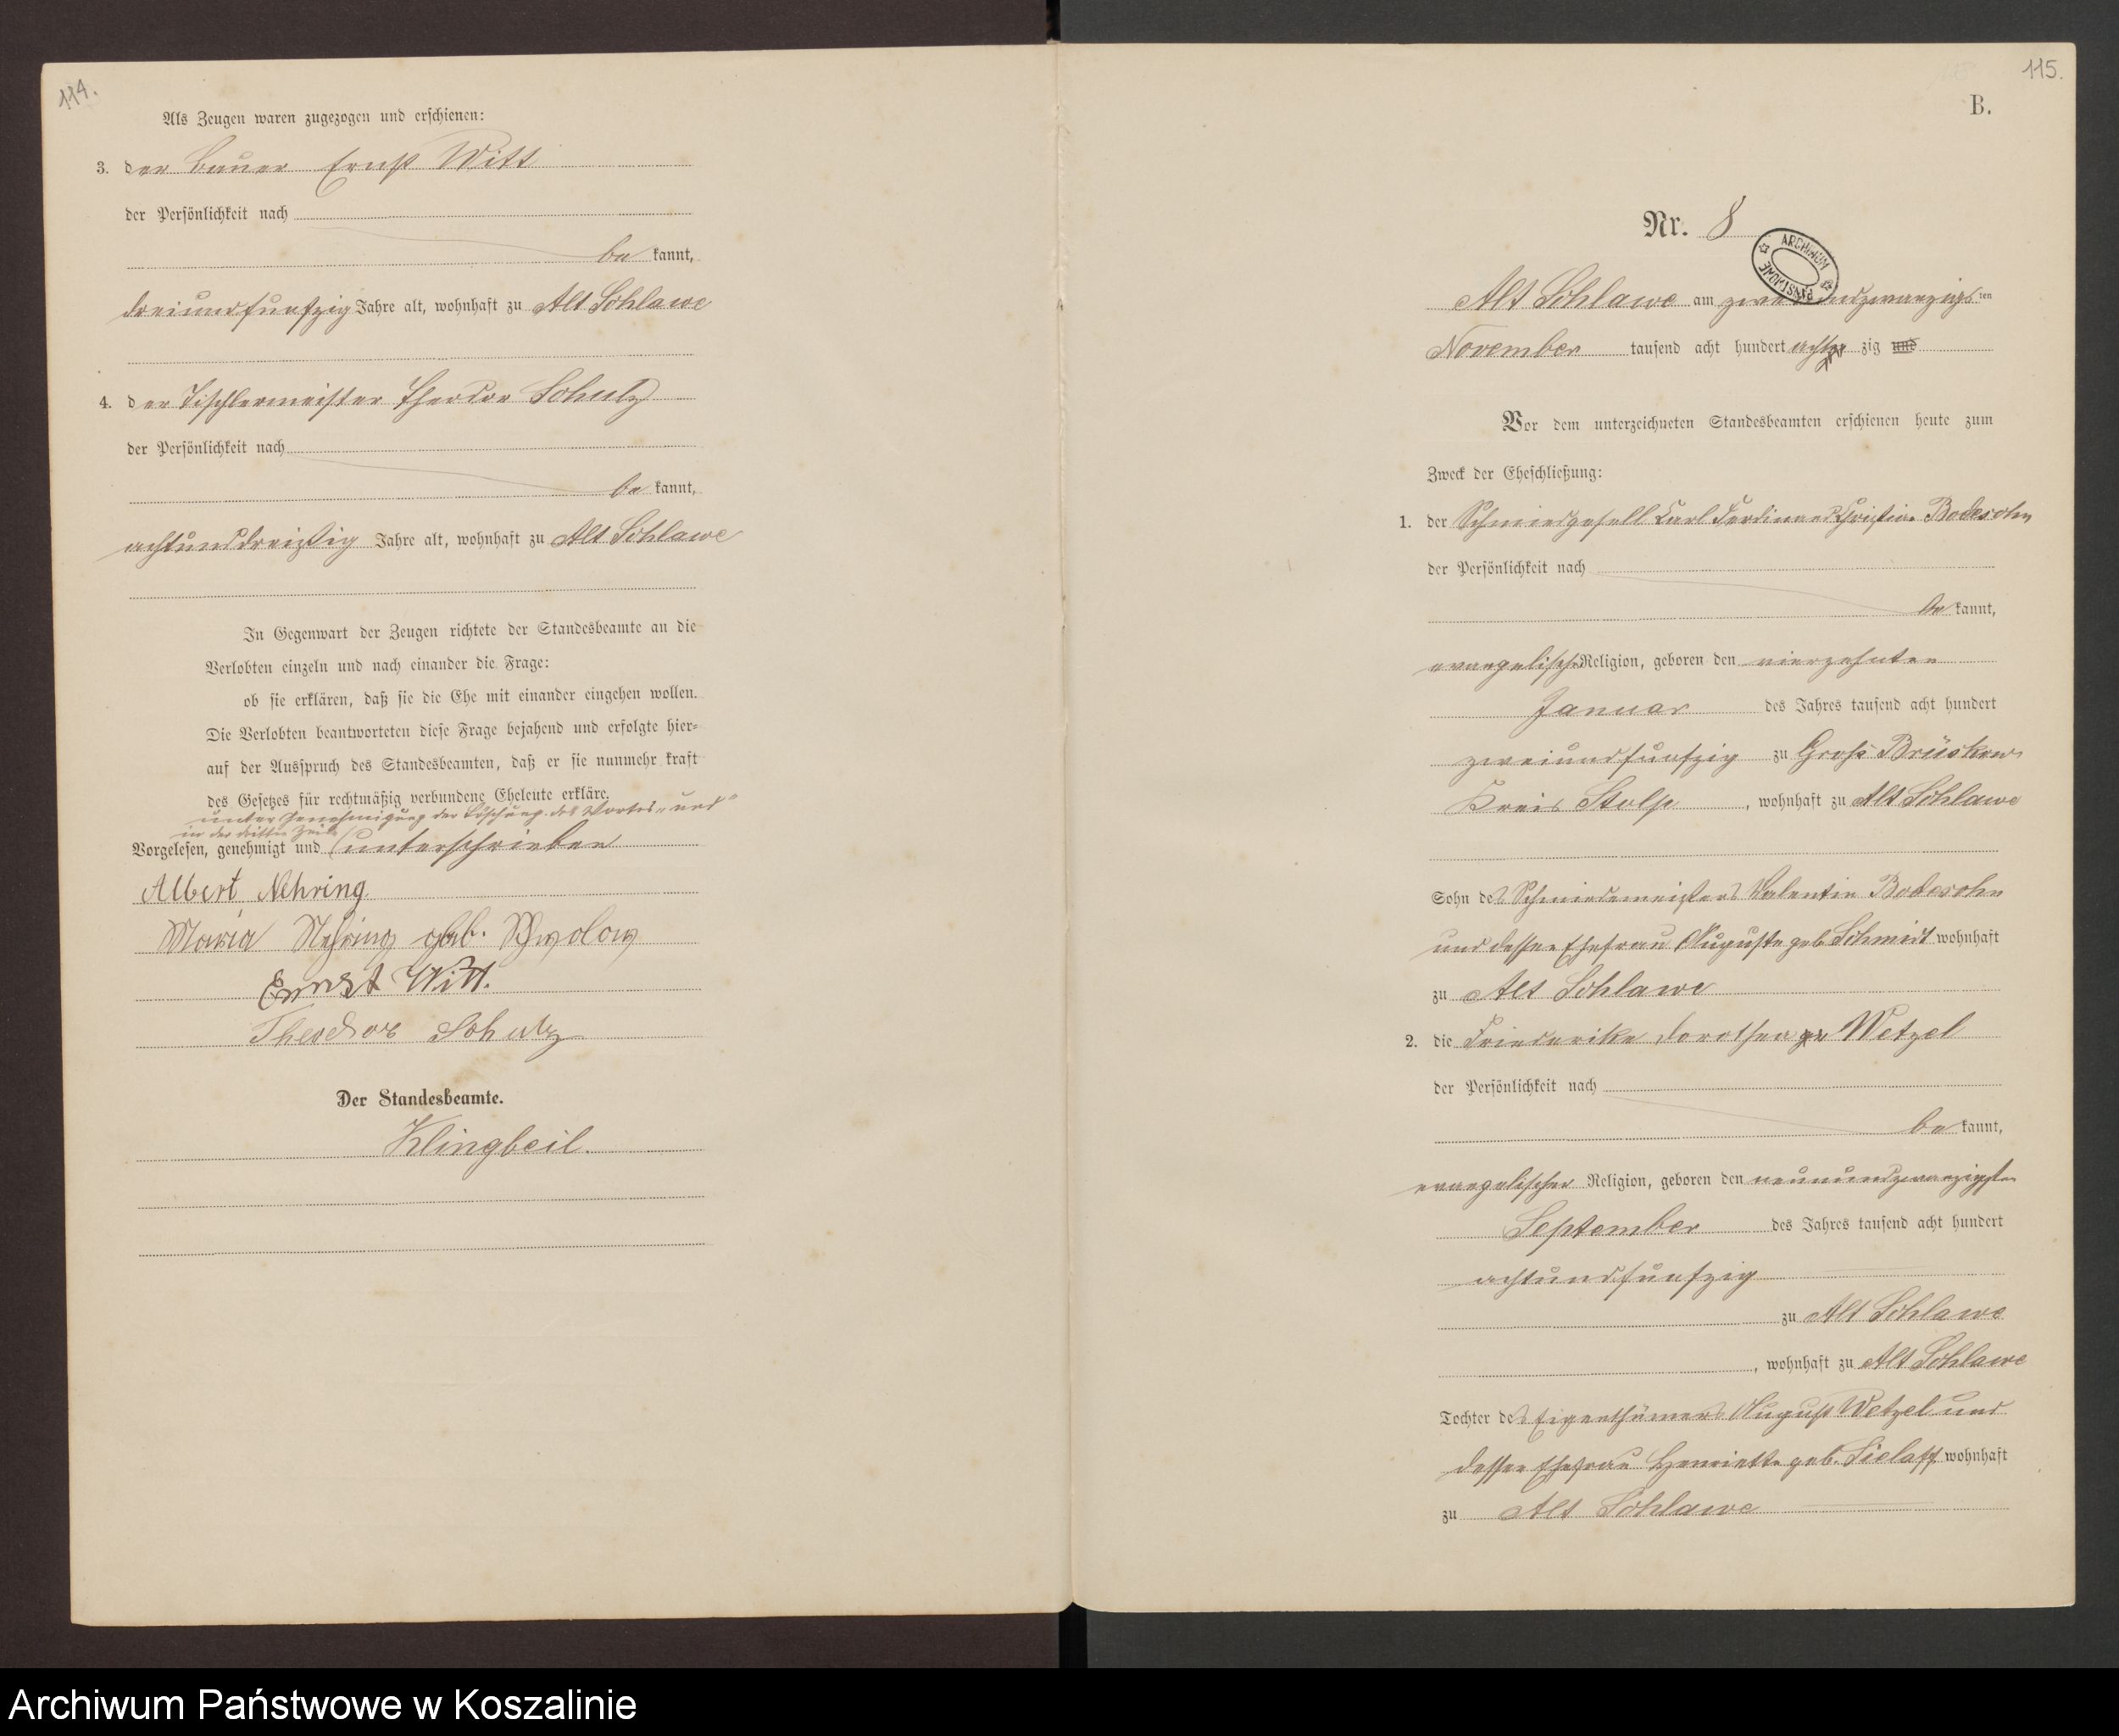 114.
Als Zeugen waren zugezogen und erschienen:
3. der Bauer Ernst Witt
der Persönlichkeit nach
be kannt,
dreiundfünfzig Jahre alt, wohnhaft zu Alt Schlawe
4. der Tischlermeister Theodor Schulz
der Persönlichkeit nach
be kannt,
achtunddreißig Jahre alt, wohnhaft zu Alt Schlawe
In Gegenwart der Zeugen richtete der Standesbeamte an die
Verlobten einzeln und nach einander die Frage:
ob sie erklären, daß sie die Ehe mit einander eingehen wollen.
Die Verlobten beantworteten diese Frage bejahend und erfolgte hier-
auf der Ausspruch des Standesbeamten, daß er sie nunmehr kraft
des Gesetzes für rechtmäßig verbundene Eheleute erkläre.
unter Genehmigung der Löschung des Wortes "und"
in der dritten Zeile
Vorgelesen, genehmigt und unterschrieben
Albert Nehring
Maria Nehring geb.
Ernst Witt.
Theodor Schulz
Der Standesbeamte.
Klingbeil.
115.
B.
Nr. 8
ARCHIWUM PAŃSTWOWE
Alt Schlawe am zweiundzwanzigs ten
November tausend acht hundert acht zig und
Vor dem unterzeichneten Standesbeamten erschienen heute zum
Zweck der Eheschließung:
1. der Schmiedgesell Carl Ferdinand Christian Bodesohn
der Persönlichkeit nach
be kannt,
evangelischer Religion, geboren den vierzehnten
Januar des Jahres tausend acht hundert
zweiundfünfzig zu Groß Brüskow
Kreis Stolp, wohnhaft zu Alt Schlawe
Sohn des Schmiedemeisters Valentin Bodesohn
und dessen Ehefrau Auguste geb Schmidt wohnhaft
zu Alt Schlawe
2. die Friederike Dorothea Wetzel
der Persönlichkeit nach
be kannt,
evangelischer Religion, geboren den neunundzwanzigsten
September des Jahres tausend acht hundert
achtundfünfzig
zu Alt Schlawe
, wohnhaft zu Alt Schlawe
Tochter des Eigenthümers August Wetzel und
dessen Ehefrau Henriette geb. Sielaff wohnhaft
zu Alt Schlawe
Archiwum Państwowe w Koszalinie